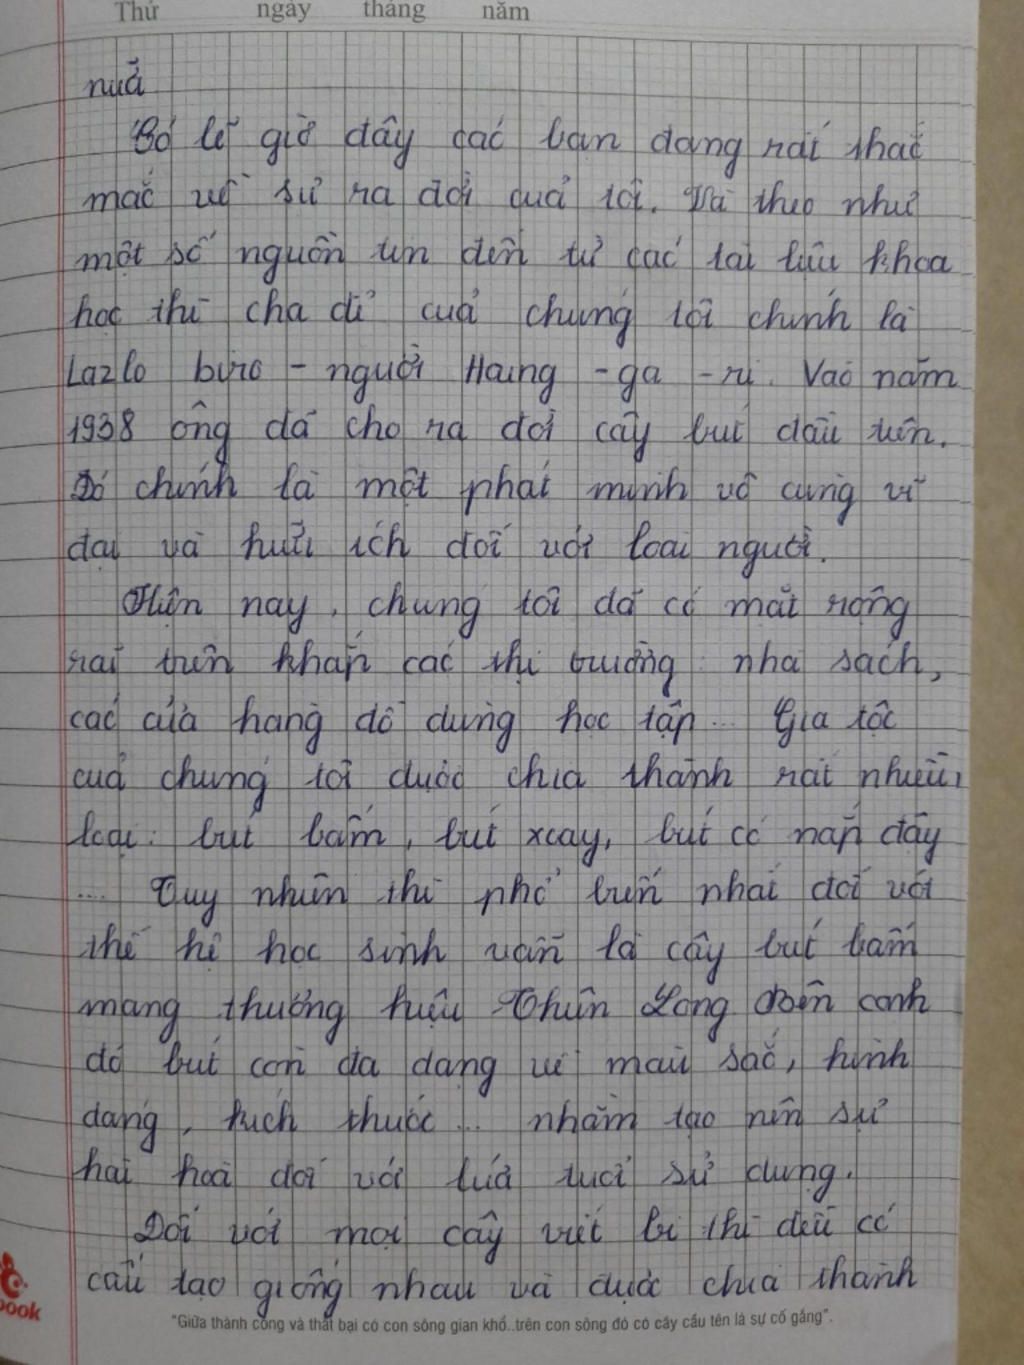 Thứ ngày tháng năm
nữa
Có lẽ giờ đây các bạn đang rất thắc
mắc về sự ra đời của tôi. Và theo như
một số nguồn tin đến từ các tài liệu khoa
học thì cha đẻ của chúng tôi chính là
Lazlo biro - người Hung - ga - ri. Vào năm
1938 ông đã cho ra đời cây bút đầu tiên.
Đó chính là một phát minh vô cùng vĩ
đại và hữu ích đối với loài người.
Hiện nay, chúng tôi đã có mặt rộng
rãi trên khắp các thị trường: nhà sách,
các cửa hàng đồ dùng học tập... Gia tộc
của chúng tôi được chia thành rất nhiều
loại: bút bấm, bút xoay, bút có nắp đậy
.... Tuy nhiên thì phổ biến nhất đối với
thế hệ học sinh vẫn là cây bút bấm
mang thương hiệu Thiên Long. Bên cạnh
đó bút còn đa dạng về màu sắc, hình
dáng, kích thước ... nhằm tạo nên sự
hài hoà đối với lứa tuổi sử dụng.
Đối với mọi cây viết bi thì đều có
cấu tạo giống nhau và được chia thành
book
"Giữa thành công và thất bại có con sông gian khổ..trên con sông đó có cây cầu tên là sự cố gắng".